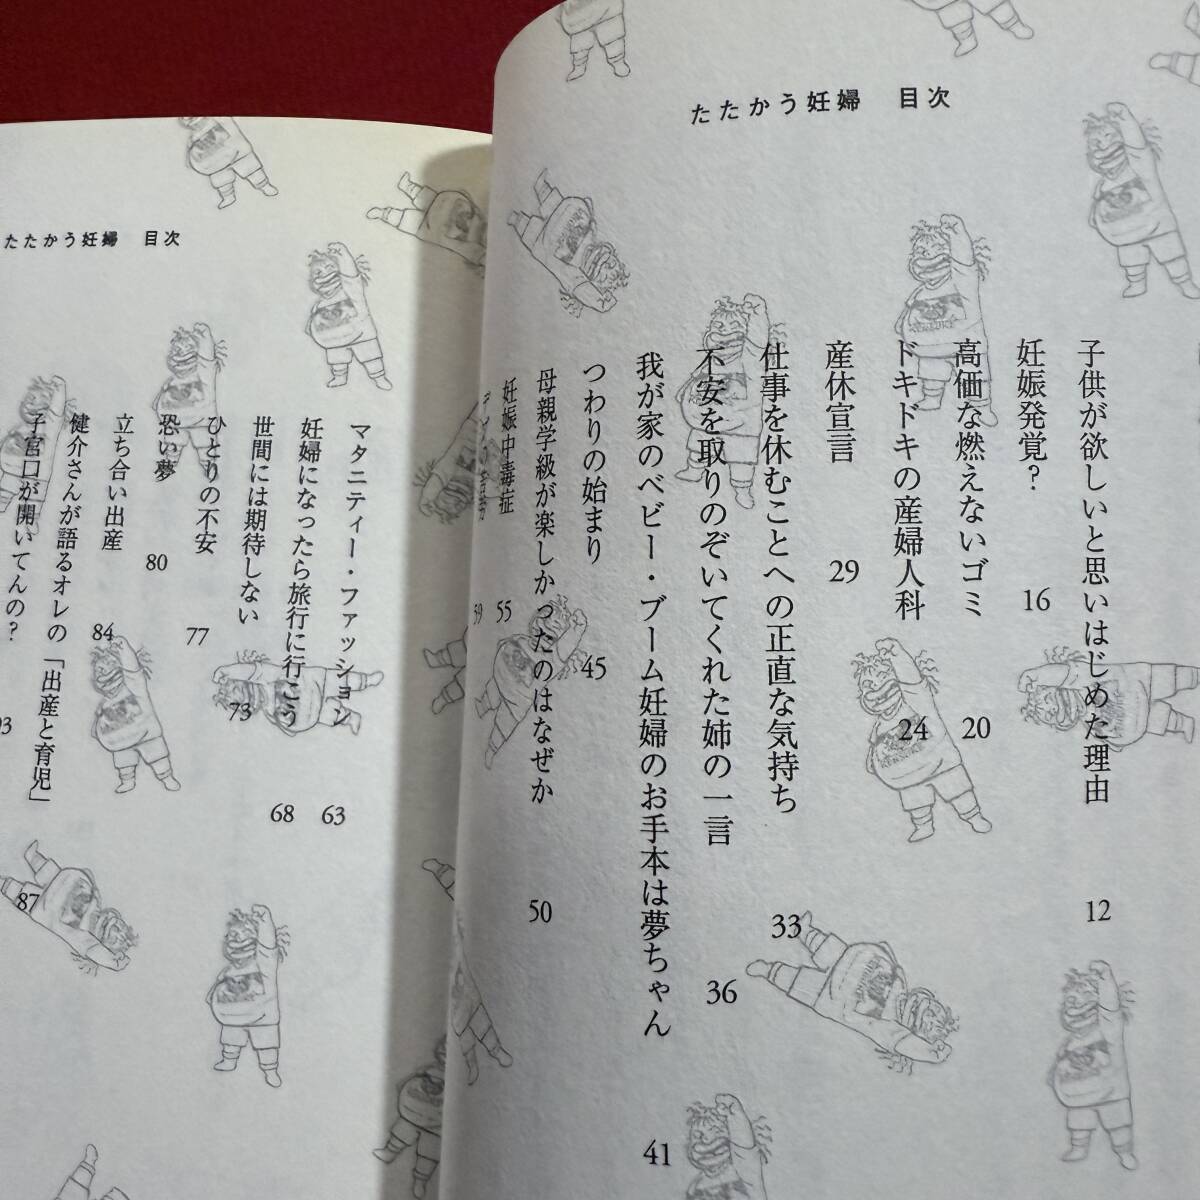 たたかう妊婦　目次
子供が欲しいと思いはじめた理由　12
妊娠発覚？　16
高価な燃えないゴミ　20
ドキドキの産婦人科　24
産休宣言　29
仕事を休むことへの正直な気持ち　33
不安を取りのぞいてくれた姉の一言　36
我が家のベビー・ブーム妊婦のお手本は夢ちゃん　41
つわりの始まり　45
母親学級が楽しかったのはなぜか　50
妊娠中毒症　55
59
たたかう妊婦　目次
マタニティー・ファッション　63
妊婦になったら旅行に行こう　68
世間には期待しない　73
ひとりの不安　77
恐い夢　80
立ち合い出産　84
健介さんが語るオレの「出産と育児」　87
子宮口が開いてんの？　93